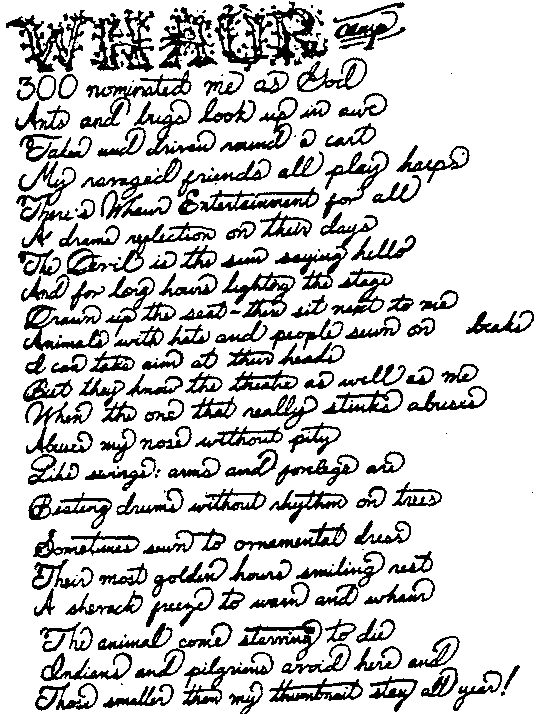 WHAUR camp
300 nominated me as God
Ants and bugs look up in awe
Taken and driven round a cart
My ravaged friends all play harps
There's Whaur Entertainment for all
A drama reflection on their days
The Devil is the sun saying hello
And for long hours lighting the stage
Drawn up the seat - then sit next to me
Animals with hats and people sewn on beaks
I can take aim at their heads
But they know the theatre as well as me
When the one that really stinks abuses
Abuses my nose without pity
Like swings: arms and forelegs are
Beating drums without rhythm on trees
Sometimes sewn to ornamental dress
Their most golden hours smiling rest
A freeze to warn and whaur
The animal come starving to die
Indians and pilgrims avoid here and
Those smaller then my thumbnail stay all year!